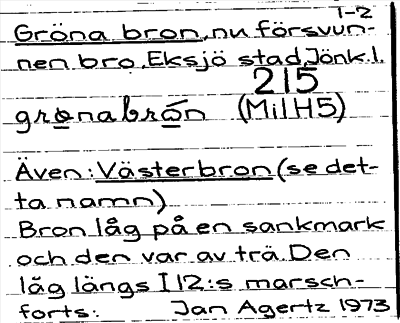 1-2
Gröna bron, nu försvun-
nen bro, Eksjö stad, Jönk.l.
215
grǫnabrǫ́n (Mil H5)
Även: Västerbron (se det-
ta namn)
Bron låg på en sankmark
och den var av trä. Den
låg längs I 12:s marsch-
forts. Jan Agertz 1973